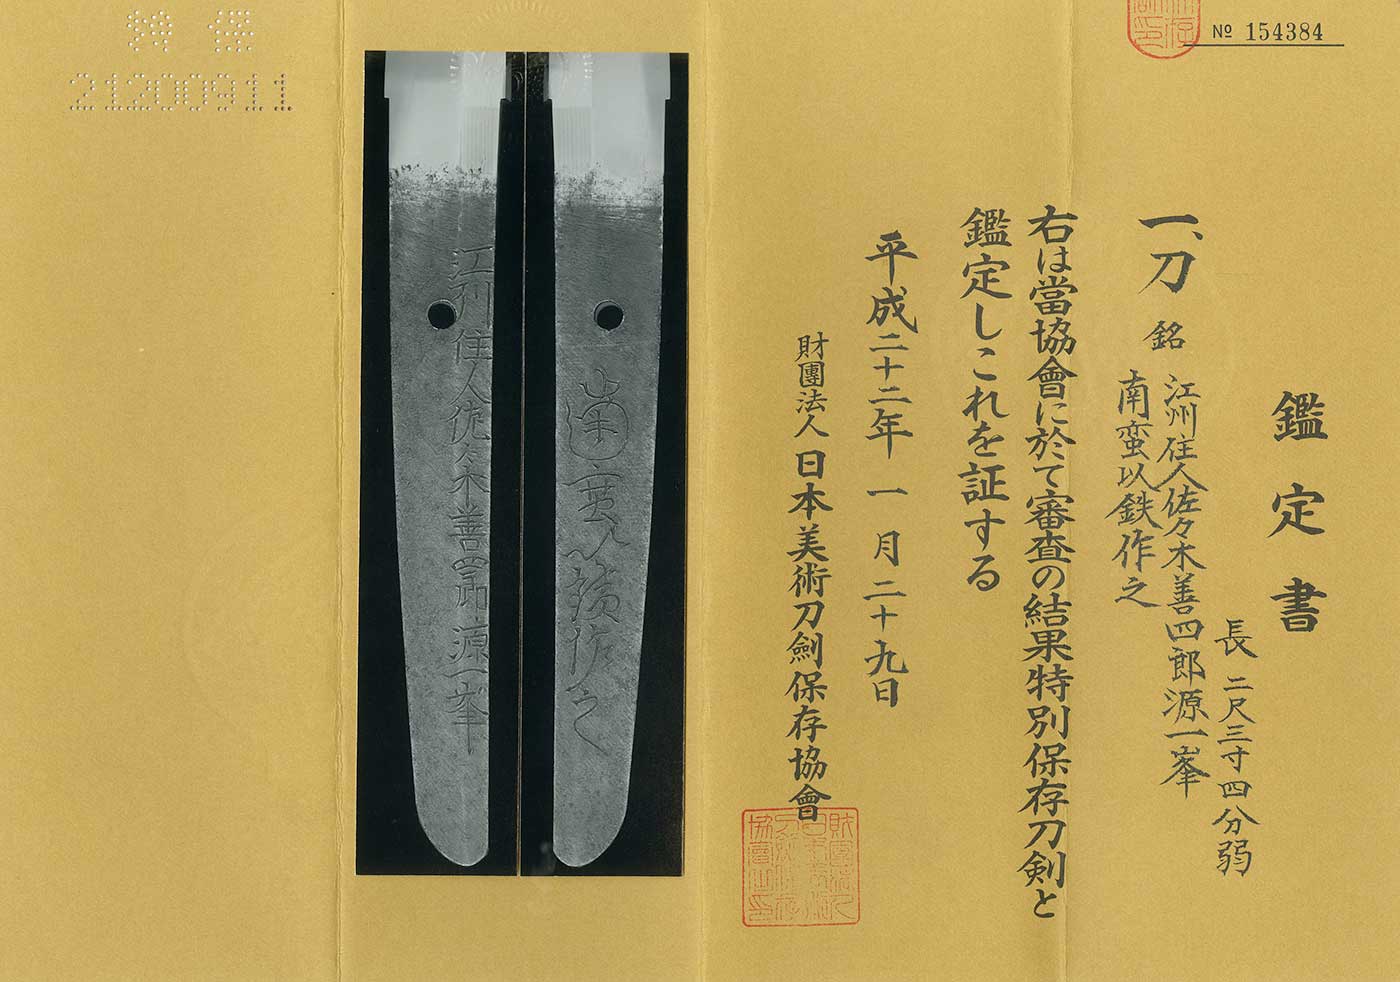 № 154384
鑑定書
長 二尺三寸四分弱
一、刀 銘 江州住人佐々木善四郎源一峯
南蛮以鉄作之
右は當協會に於て審査の結果特別保存刀剣と
鑑定しこれを証する
平成二十二年一月二十九日
財團法人日本美術刀劍保存協會
江州住人佐々木善四郎源一峯
南蛮以鐵作之
特 保
21200911